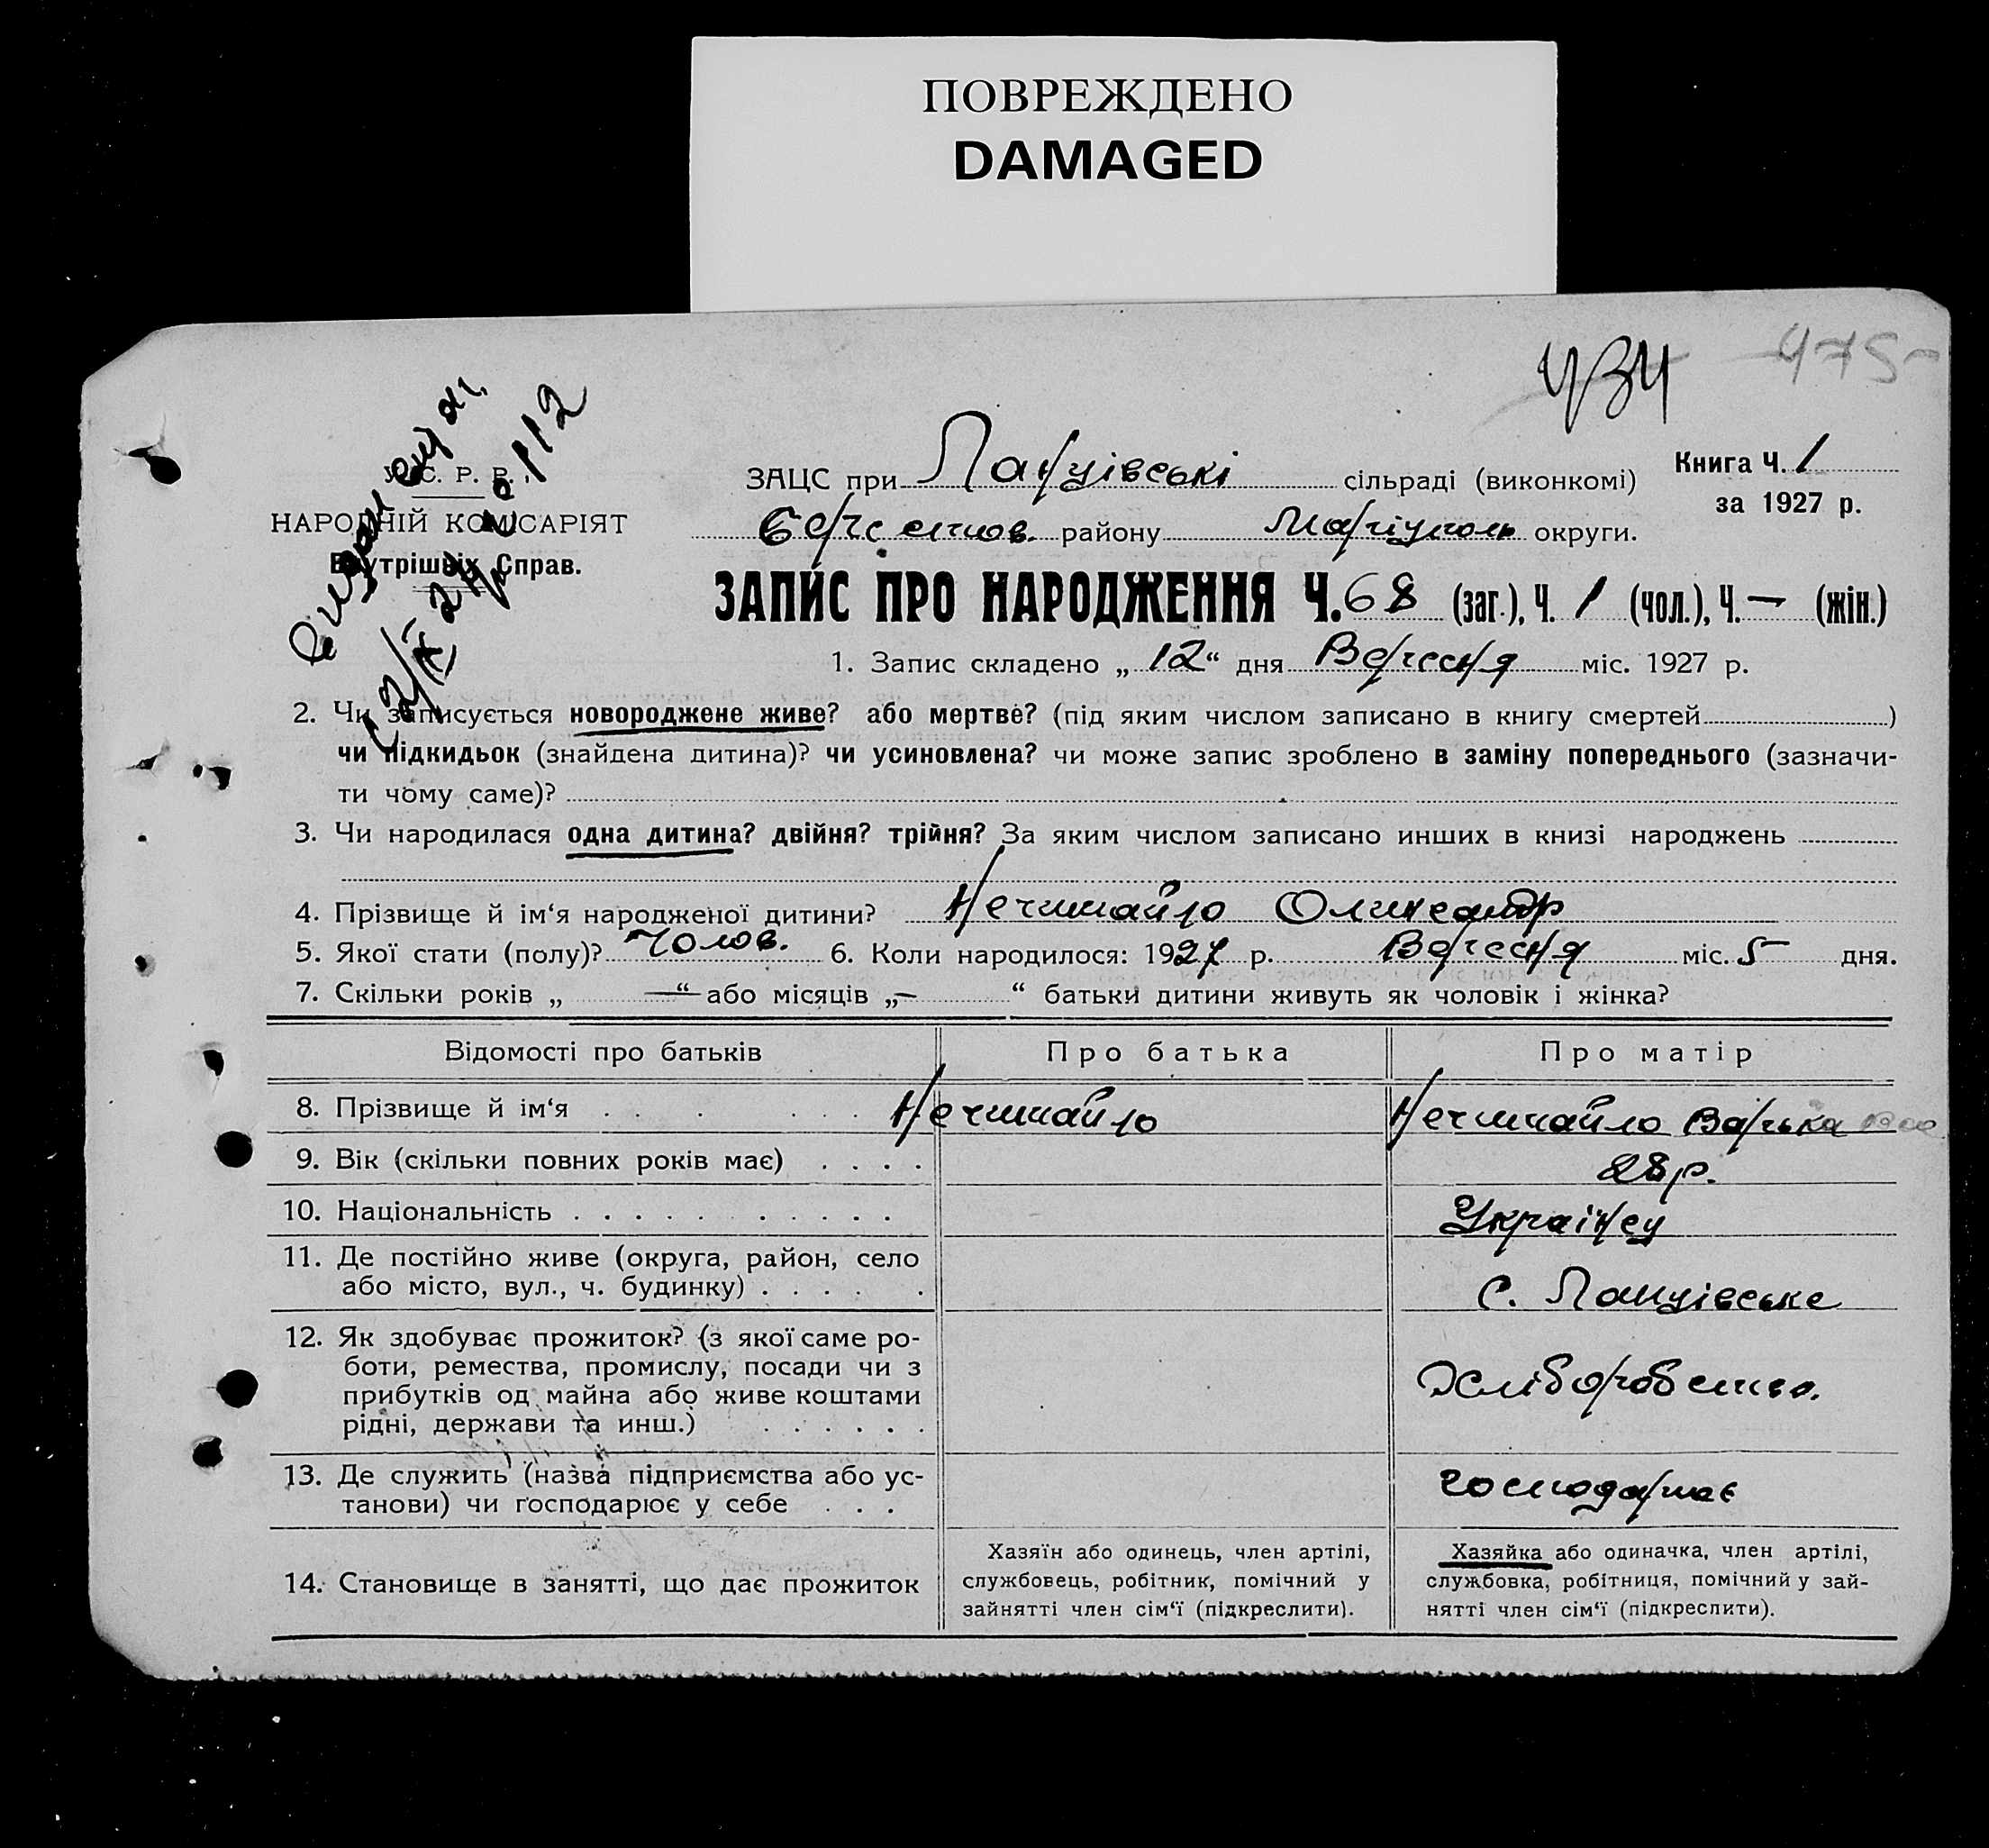 ПОВРЕЖДЕНО
DAMAGED
434
475
У. С. Р. Р.
НАРОДНІЙ КОМІСАРІЯТ
Внутрішніх Справ.
ЗАЦС при сільраді (виконкомі)
Книга Ч. 1
за 1927 р.
району Маріуполь округи.
ЗАПИС ПРО НАРОДЖЕННЯ Ч. 68 (заг.), Ч. 1 (чол.), Ч. — (жін.)
1. Запис складено „ 12 “ дня Вересня міс. 1927 р.
2. Чи записується новороджене живе? або мертве? (під яким числом записано в книгу смертей )
чи підкидьок (знайдена дитина)? чи усиновлена? чи може запис зроблено в заміну попереднього (зазначи-
ти чому саме)?
3. Чи народилася одна дитина? двійня? трійня? За яким числом записано инших в книзі народжень
4. Прізвище й ім‘я народженої дитини? Нечипайло Олександр
5. Якої стати (полу)? Чолов. 6. Коли народилося: 1927 р. Вересня міс. 5 дня.
7. Скільки років „ — “ або місяців „ — “ батьки дитини живуть як чоловік і жінка?
Відомості про батьків Про батька Про матір
8. Прізвище й ім‘я . . . . . . Нечипайло Нечипайло Варька
9. Вік (скільки повних років має) . . . . 28 р.
10. Національність . . . . . . . . . . Українец
11. Де постійно живе (округа, район, село
або місто, вул., ч. будинку) . . . . . с.
12. Як здобуває прожиток? (з якої саме ро-
боти, ремества, промислу, посади чи з
прибутків од майна або живе коштами
рідні, держави та инш.) . . . . . .
Хліборобство.
13. Де служить (назва підприємства або ус-
танови) чи господарює у себе . . .
господарює
14. Становище в занятті, що дає прожиток
Хазяїн або одинець, член артілі,
службовець, робітник, помічний у
зайнятті член сім‘ї (підкреслити).
Хазяйка або одиначка, член артілі,
службовка, робітниця, помічний у зай-
нятті член сім‘ї (підкреслити).